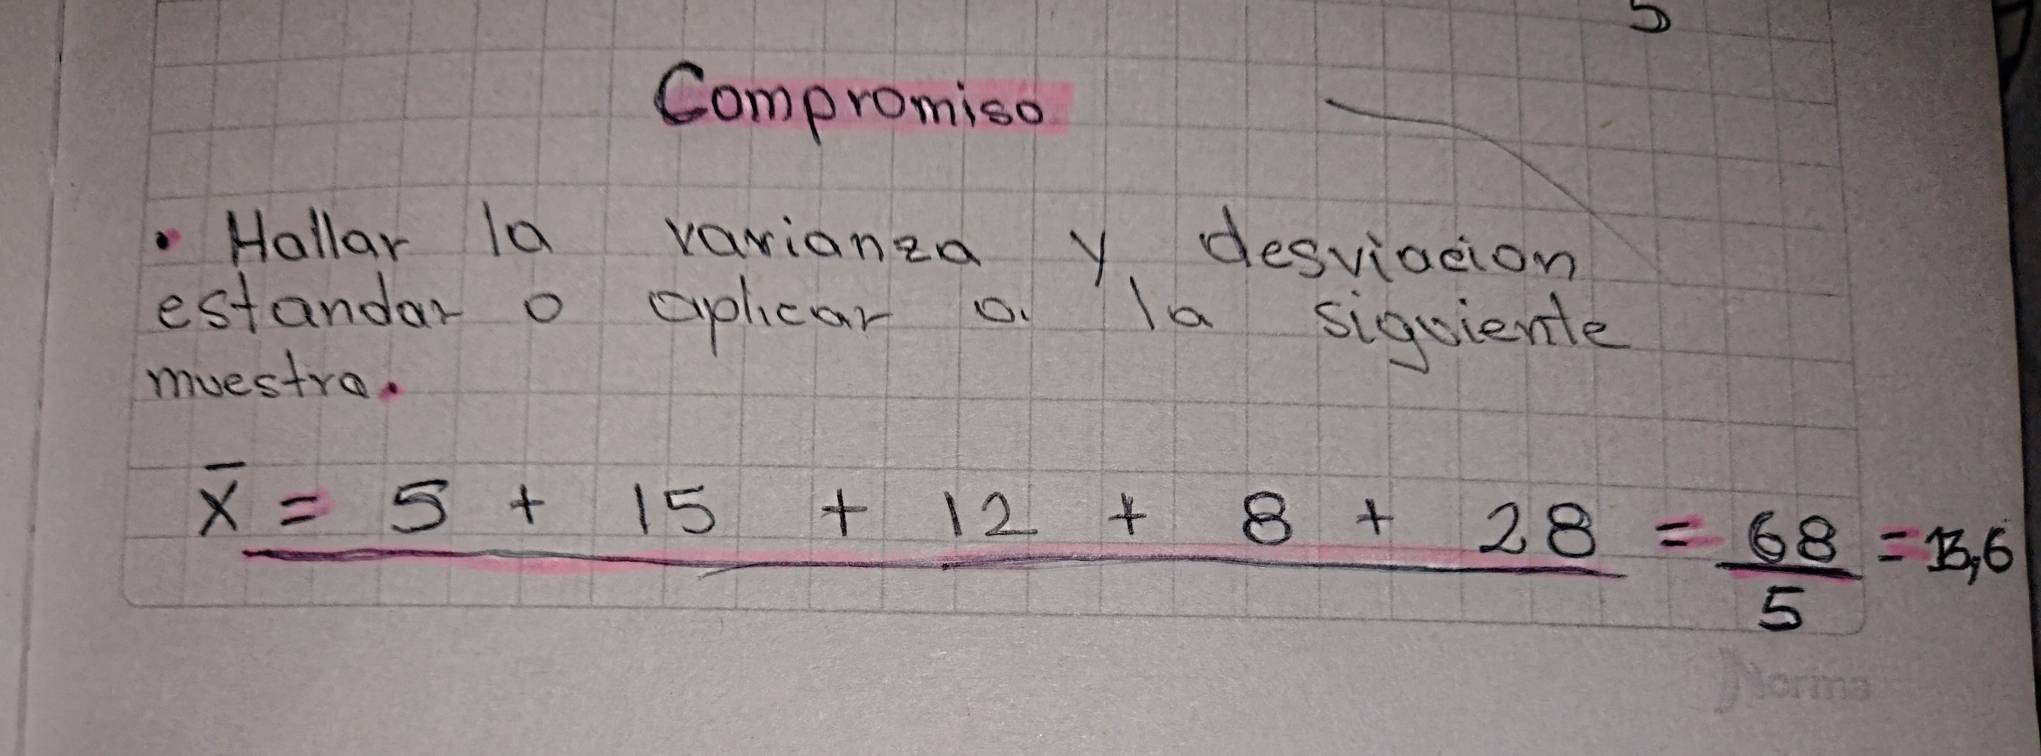 5
Compromiso
• Hallar la varianza y desviacion
estandar o aplicar a la siguiente
muestra.
x̄ = 5 + 15 + 12 + 8 + 28 = 68 = 13,6
5
Norma